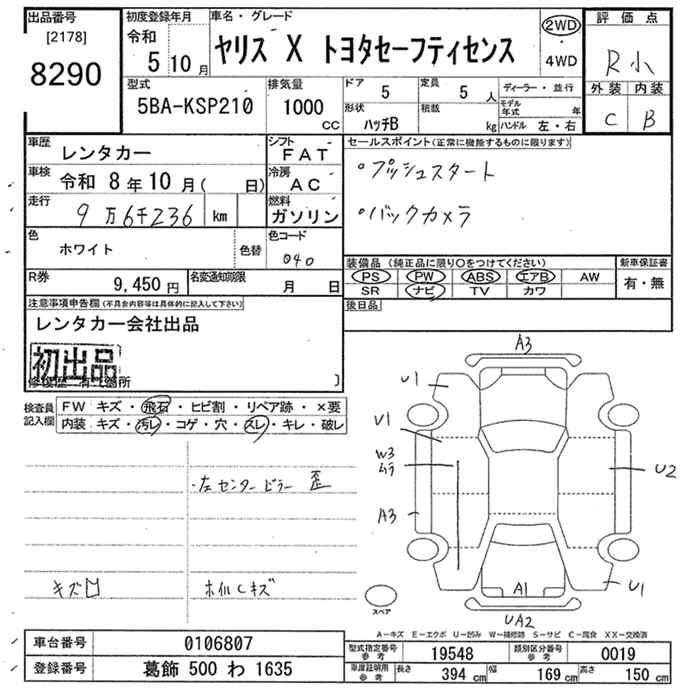 出品番号
[2178]
8290
初度登録年月
令和
5 10 月
車名・グレード
ヤリス X トヨタセーフティセンス
2WD
・
4WD
評価点
R小
外装 内装
C B
型式
5BA-KSP210
排気量
1000
CC
ドア 5
形状 ハッチB
定員 5 人
積載 kg
ディーラー・並行
モデル年式 年
ハンドル 左・右
車歴 レンタカー
シフト FAT
車検 令和 8 年 10 月( 日)
冷房 AC
走行 9万6千236 km
燃料 ガソリン
色 ホワイト
色替
色コード 040
R券 9,450 円
名変通知期限 月 日
セールスポイント(正常に機能するものに限ります)
・プッシュスタート
・バックカメラ
装備品(純正品に限り○をつけてください)
PS PW ABS エアB AW
SR ナビ TV カワ
新車保証書
有・無
後日品
注意事項申告欄(不具合内容等は具体的に記入して下さい)
レンタカー会社出品
初出品
検査員記入欄
FW キズ・飛石・ヒビ割・リペア跡・×要
内装・キズ・汚レ・コゲ・穴・スレ・キレ・破レ
・左センターピラー 歪
キズ凹
ホイルCキズ
A3
U1
U1
W3
ムラ
A3
U2
A1
U1
UA2
スペア
A-キズ E-エクボ U-凹み W-補修跡 S-サビ C-腐食 XX-交換済
車台番号 0106807
登録番号 葛飾 500 わ 1635
型式指定番号 参考 19548
類別区分番号 参考 0019
車庫証明用 参考 長さ 394 cm 幅 169 cm 高さ 150 cm